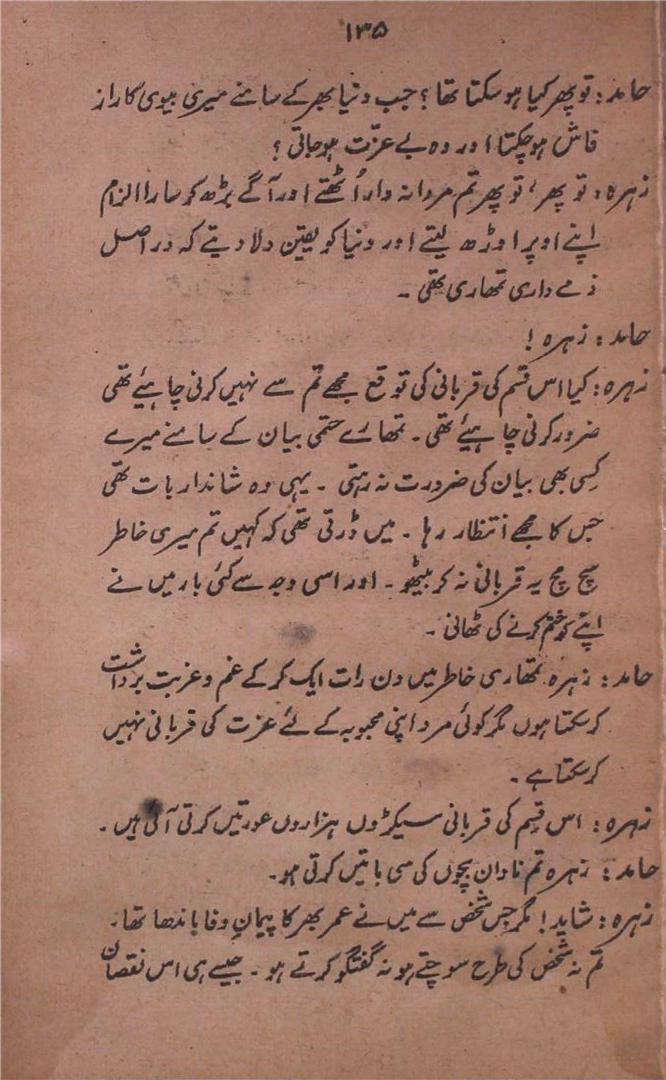 ۱۳۵
حامد: تو پھر کیا ہو سکتا تھا؟ جب دنیا بھر کے سامنے میری بیوی کا راز
فاش ہو چکتا اور وہ بے عزّت ہو جاتی؟
زہرہ: تو پھر، تو پھر تم مردانہ وار اُٹھتے اور آگے بڑھ کر سارا الزام
اپنے اوپر اوڑھ لیتے اور دنیا کو یقین دلا دیتے کہ در اصل
ذمے داری تمھاری تھی ۔
حامد: زہرہ!
زہرہ: کیا اس قسم کی قربانی کی توقع مجھے تم سے نہیں کرنی چاہیئے تھی
ضرور کرنی چاہیئے تھی۔ تمھارے حتمی بیان کے سامنے میرے
کسی بھی بیان کی ضرورت نہ رہتی ۔ یہی وہ شاندار بات تھی
جس کا مجھے انتظار رہا ۔ میں ڈرتی تھی کہ کہیں تم میری خاطر
سچ مچ یہ قربانی نہ کر بیٹھو ۔ اور اسی وجہ سے کئی بار میں نے
اپنے کو ختم کرنے کی ٹھانی ۔
حامد: زہرہ تمھاری خاطر میں دن رات ایک کر کے غم و غربت برداشت
کر سکتا ہوں مگر کوئی مرد اپنی محبوبہ کے لئے عزت کی قربانی نہیں
کر سکتا ہے ۔
زہرہ: اس قسم کی قربانی سیکڑوں ہزاروں عورتیں کرتی آئی ہیں ۔
حامد: زہرہ تم نادان بچوں کی سی باتیں کرتی ہو۔
زہرہ: شاید! مگر جس شخص سے میں نے عمر بھر کا پیمانِ وفا باندھا تھا۔
تم نہ شخص کی طرح سوچتے ہو نہ گفتگو کرتے ہو ۔ جیسے ہی اس نقصان